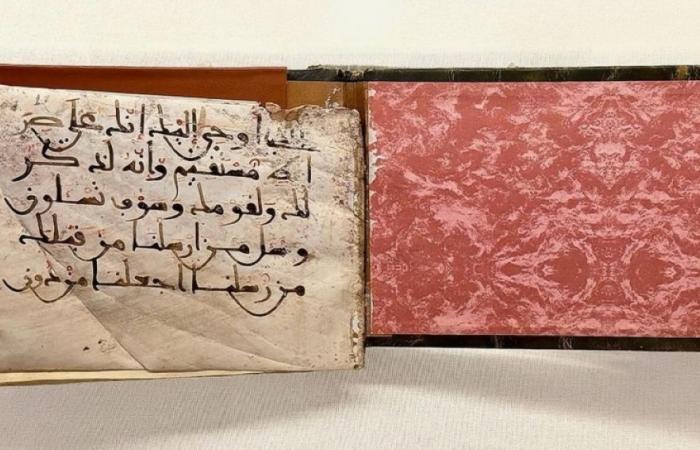 اوحي اليك انك على صر
اط مستقيم وانه لذكر
لك ولقومك وسوف تسلون
وسل من ارسلنا من قبلك
من رسلنا اجعلنا من دون